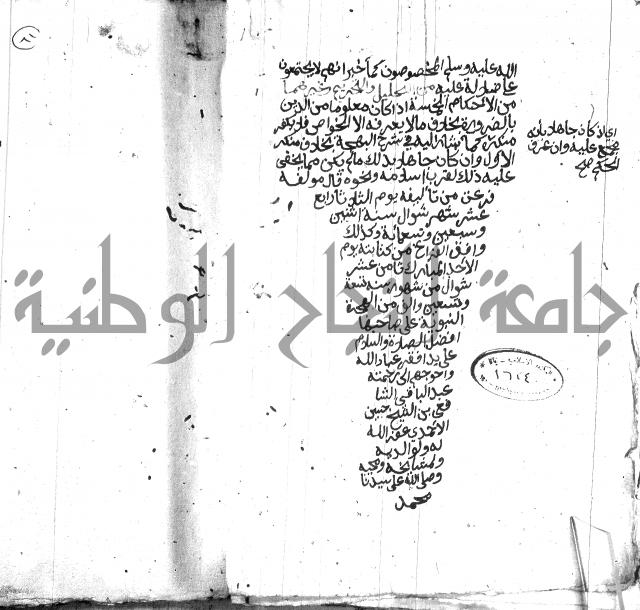 الله عليه وسلم المخصوصون كما خبرانهم لا يجتمعون
على ضلالة عليه من التحليل والتحريم وغيرهما
من الأحكام الخمسة اذا كان معلوما من الدين
بالضرورة بخلاف ما لا يعرفه الا الخواص فلا يكفر
منكره كما بينا ذلك في شرح البهجة بخلاف منكر
الاول وان كان جاهلا بذلك ما لم يكن مما يخفى
عليه ذلك لقرب اسلامه ونحوه قال مؤلفه
فرغت من تأليفه يوم الثلاثا رابع
عشر شهر شوال سنة اثنين
وسبعين وتسعمائة وكذلك
وافق الفراغ من كتابته يوم
الأحد المبارك ثامن عشر
شوال من شهور سنة تسعة
وتسعين والف من الهجرة
النبوية على صاحبها
افضل الصلاة والسلام
على يد افقر عباد الله
واحوجهم الى رحمته
عبد الباقي الشا
فعي بن الشيخ حسين
الاحمدي غفر الله
له ولوالديه
ولمشايخه ومحبيه
وصلى الله على سيدنا
محمد
اي ان كان جاهلا بأنه
مجمع عليه وان عرف
الحكم صح
جامعة النجاح الوطنية
١٦٢٤٠